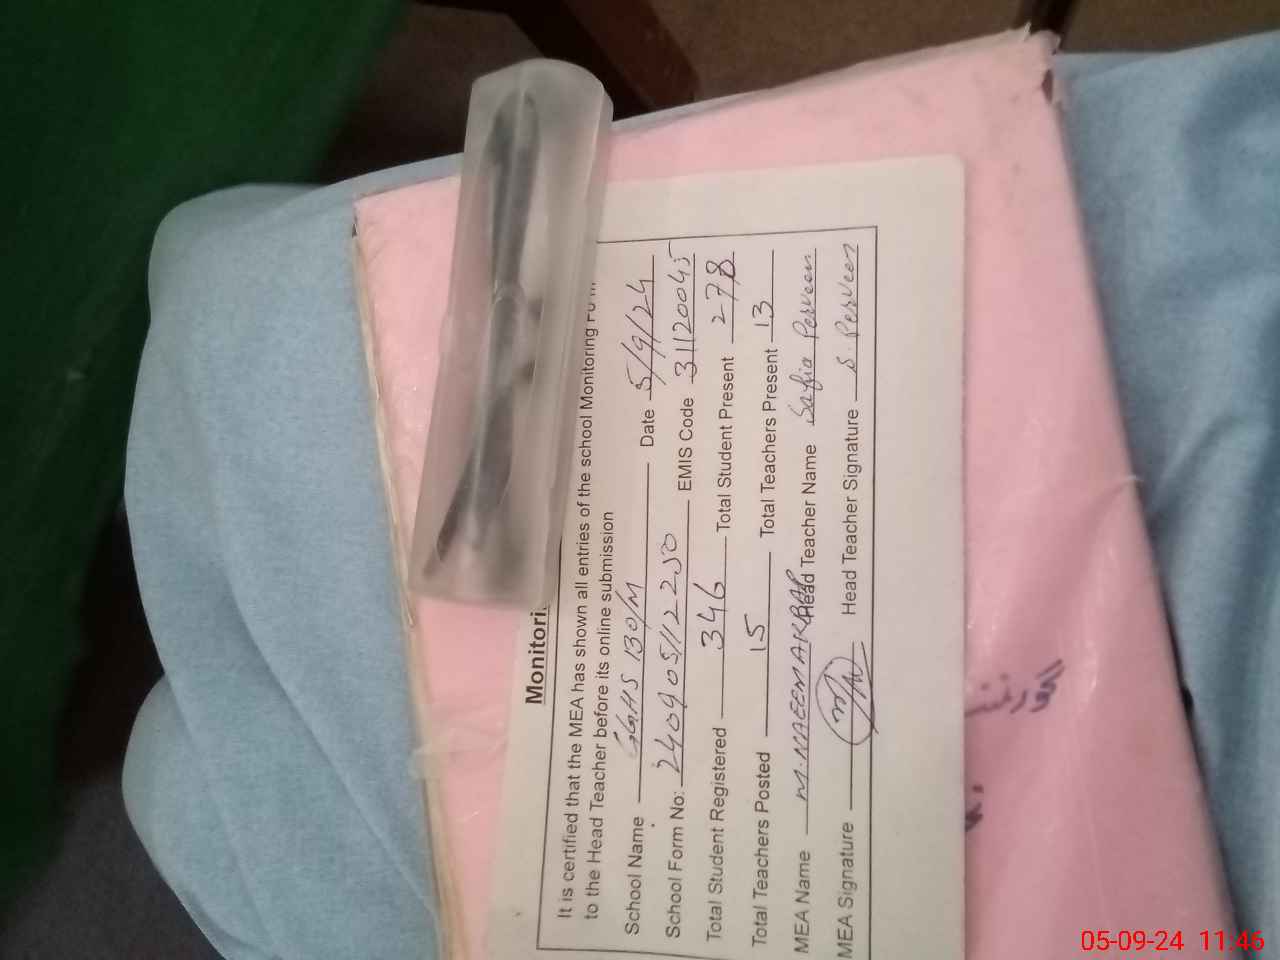 Monitori
It is certified that the MEA has shown all entries of the school Monitoring Form
to the Head Teacher before its online submission
School Name GGHS 130/M Date 5/9/24
School Form No: 240905112250 EMIS Code 31120045
Total Student Registered 346 Total Student Present 278
Total Teachers Posted 15 Total Teachers Present 13
MEA Name M. NAEEM AKBAR Head Teacher Name Safia Perveen
MEA Signature Head Teacher Signature S. Perveen
گورنمنٹ
05-09-24 11:46